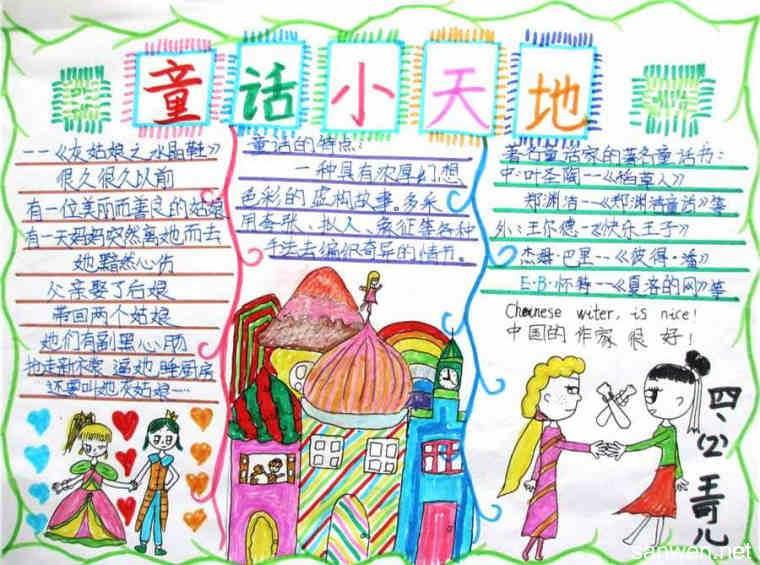 童话小天地
--《灰姑娘之水晶鞋》
很久很久以前
有一位美丽而善良的姑娘
有一天妈妈突然离她而去
她黯然心伤
父亲娶了后娘
带回两个姑娘
她们有副黑心肠
抢走新衣裳 逼她睡厨房
还要叫她灰姑娘……
童话的特点：
一种具有浓厚幻想
色彩的虚构故事。多采
用夸张、拟人、象征等各种
手法去编织奇异的情节。
著名童话家的著名童话书：
中：叶圣陶--《稻草人》
郑渊洁--《郑渊洁童话》等
外：王尔德-《快乐王子》
杰姆·巴里--《彼得·潘》
E·B·怀特--《夏洛的网》等
Choinese witer, is nice!
中国的 作家 很 好！
四、(2) 王可儿
sanwen.net